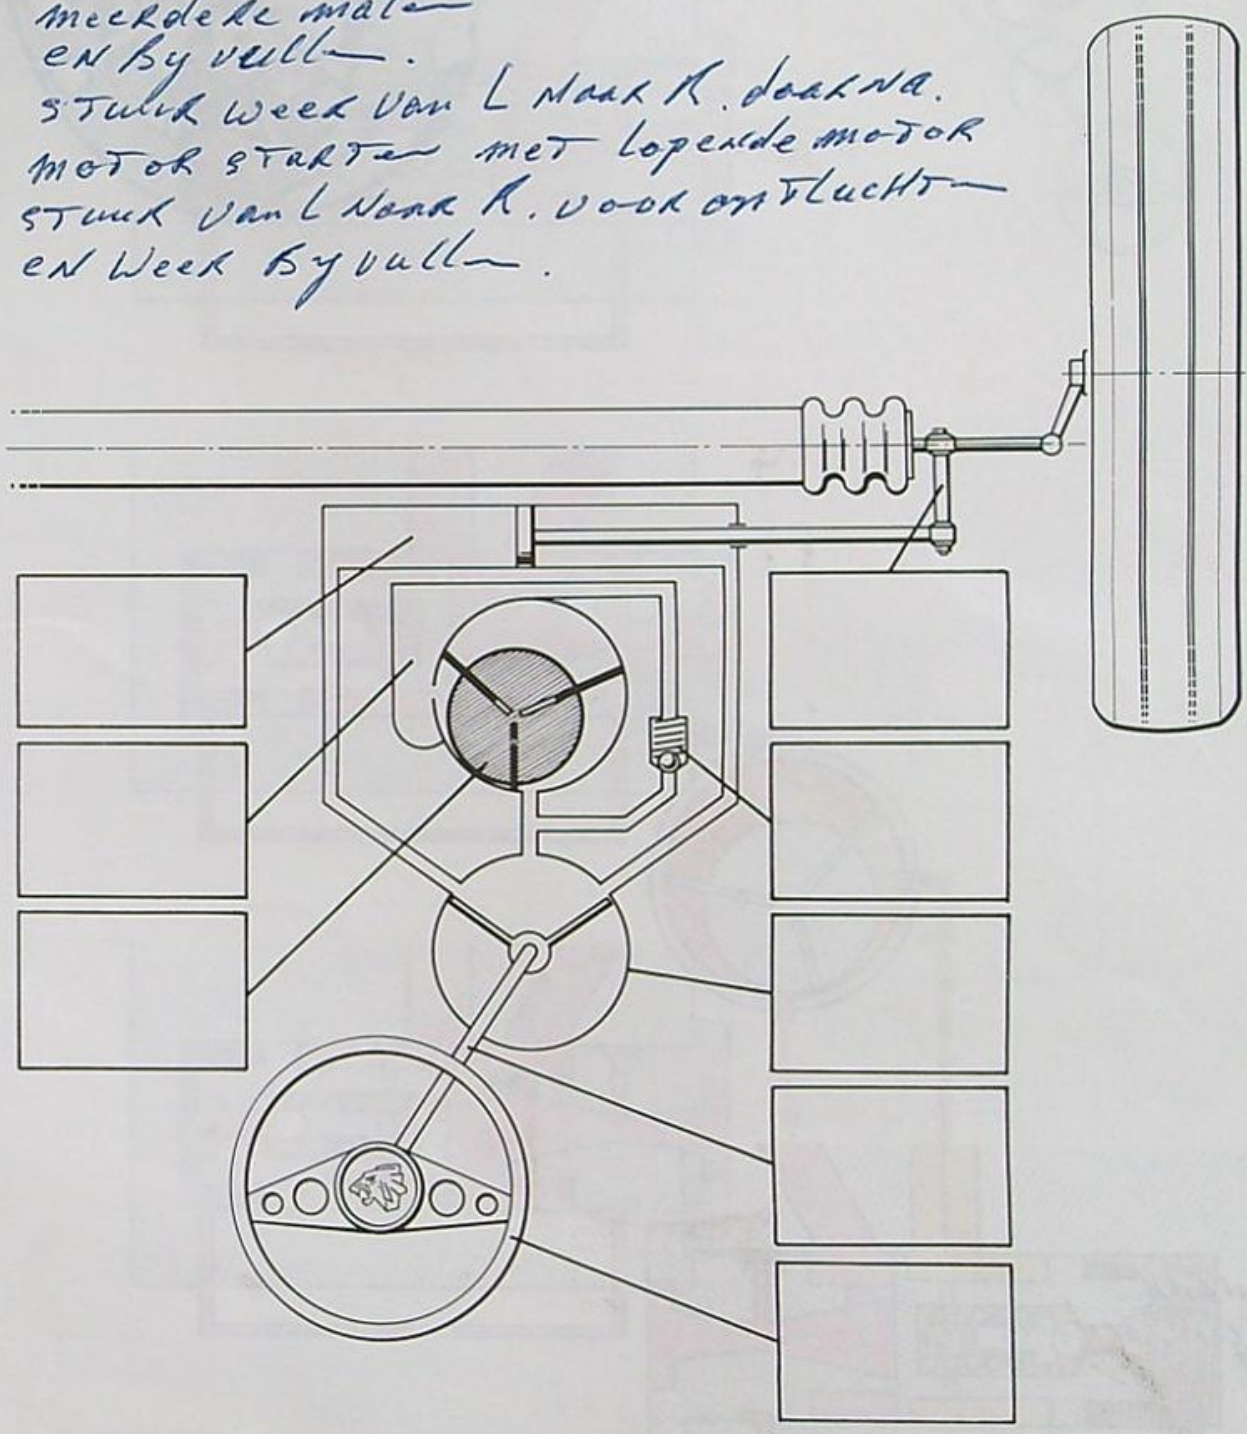 meerdere malen
en Byvullen.
Stuur weer van L naar R. daarna.
motor starten met lopende motor
stuur van L naar R. voor ontluchten
en weer Byvullen.